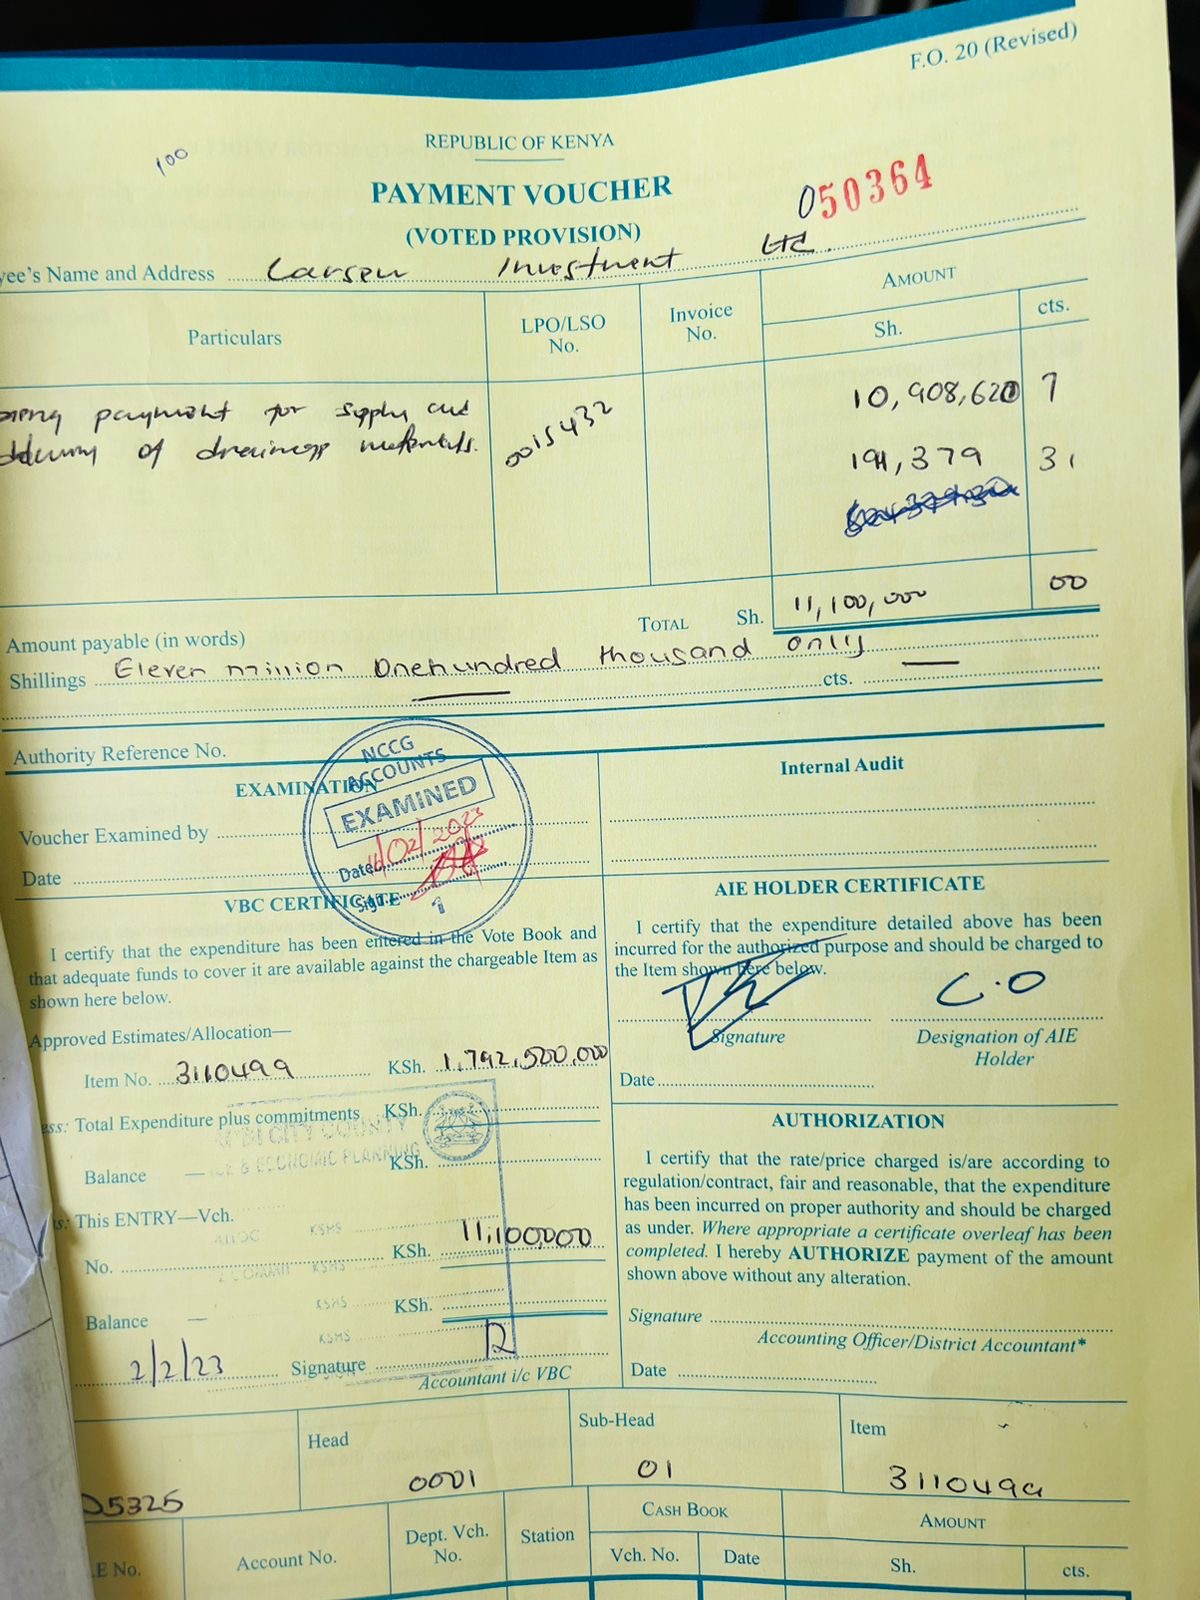 F.O. 20 (Revised)
100
REPUBLIC OF KENYA
PAYMENT VOUCHER
050364
(VOTED PROVISION)
yee's Name and Address Larsen Investment Ltd.
Particulars
LPO/LSO No.
Invoice No.
AMOUNT
Sh.
cts.
payment for supply and
delivery of drainage materials.
0015432
10,908,620 7
191,379 31
TOTAL Sh. 11,100,000 00
Amount payable (in words)
Shillings Eleven million Onehundred thousand only
cts. —
Authority Reference No.
EXAMINATION
Internal Audit
NCCG
ACCOUNTS
EXAMINED
Date 16/02/2023
Sign.
1
Voucher Examined by
Date
VBC CERTIFICATE
I certify that the expenditure has been entered in the Vote Book and
that adequate funds to cover it are available against the chargeable Item as
shown here below.
Approved Estimates/Allocation—
Item No. 3110499 KSh. 1,792,500,000
ess: Total Expenditure plus commitments KSh.
CITY COUNTY
& ECONOMIC PLANNING
Balance — KSh.
s: This ENTRY—Vch.
No. KSh. 11,100,000
KSHS
KSHS
KSHS
KSHS
Balance — KSh.
2/2/23 Signature
Accountant i/c VBC
AIE HOLDER CERTIFICATE
I certify that the expenditure detailed above has been
incurred for the authorized purpose and should be charged to
the Item shown here below.
C.O
Signature
Designation of AIE
Holder
Date
AUTHORIZATION
I certify that the rate/price charged is/are according to
regulation/contract, fair and reasonable, that the expenditure
has been incurred on proper authority and should be charged
as under. Where appropriate a certificate overleaf has been
completed. I hereby AUTHORIZE payment of the amount
shown above without any alteration.
Signature
Accounting Officer/District Accountant*
Date
Head
Sub-Head
Item
05325
0001
01
3110499
E No.
Account No.
Dept. Vch. No.
Station
CASH BOOK
Vch. No.
Date
AMOUNT
Sh.
cts.